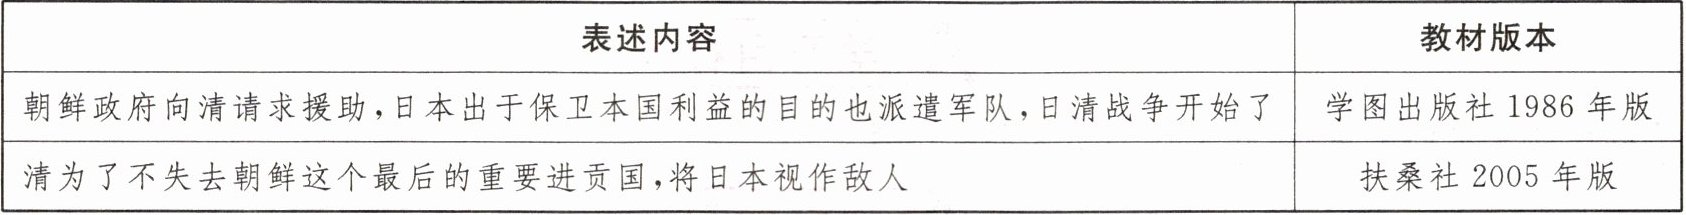 表述内容 教材版本
朝鲜政府向清请求援助,日本出于保卫本国利益的目的也派遣军队,日清战争开始了 学图出版社 1986 年版
清为了不失去朝鲜这个最后的重要进贡国,将日本视作敌人 扶桑社 2005 年版